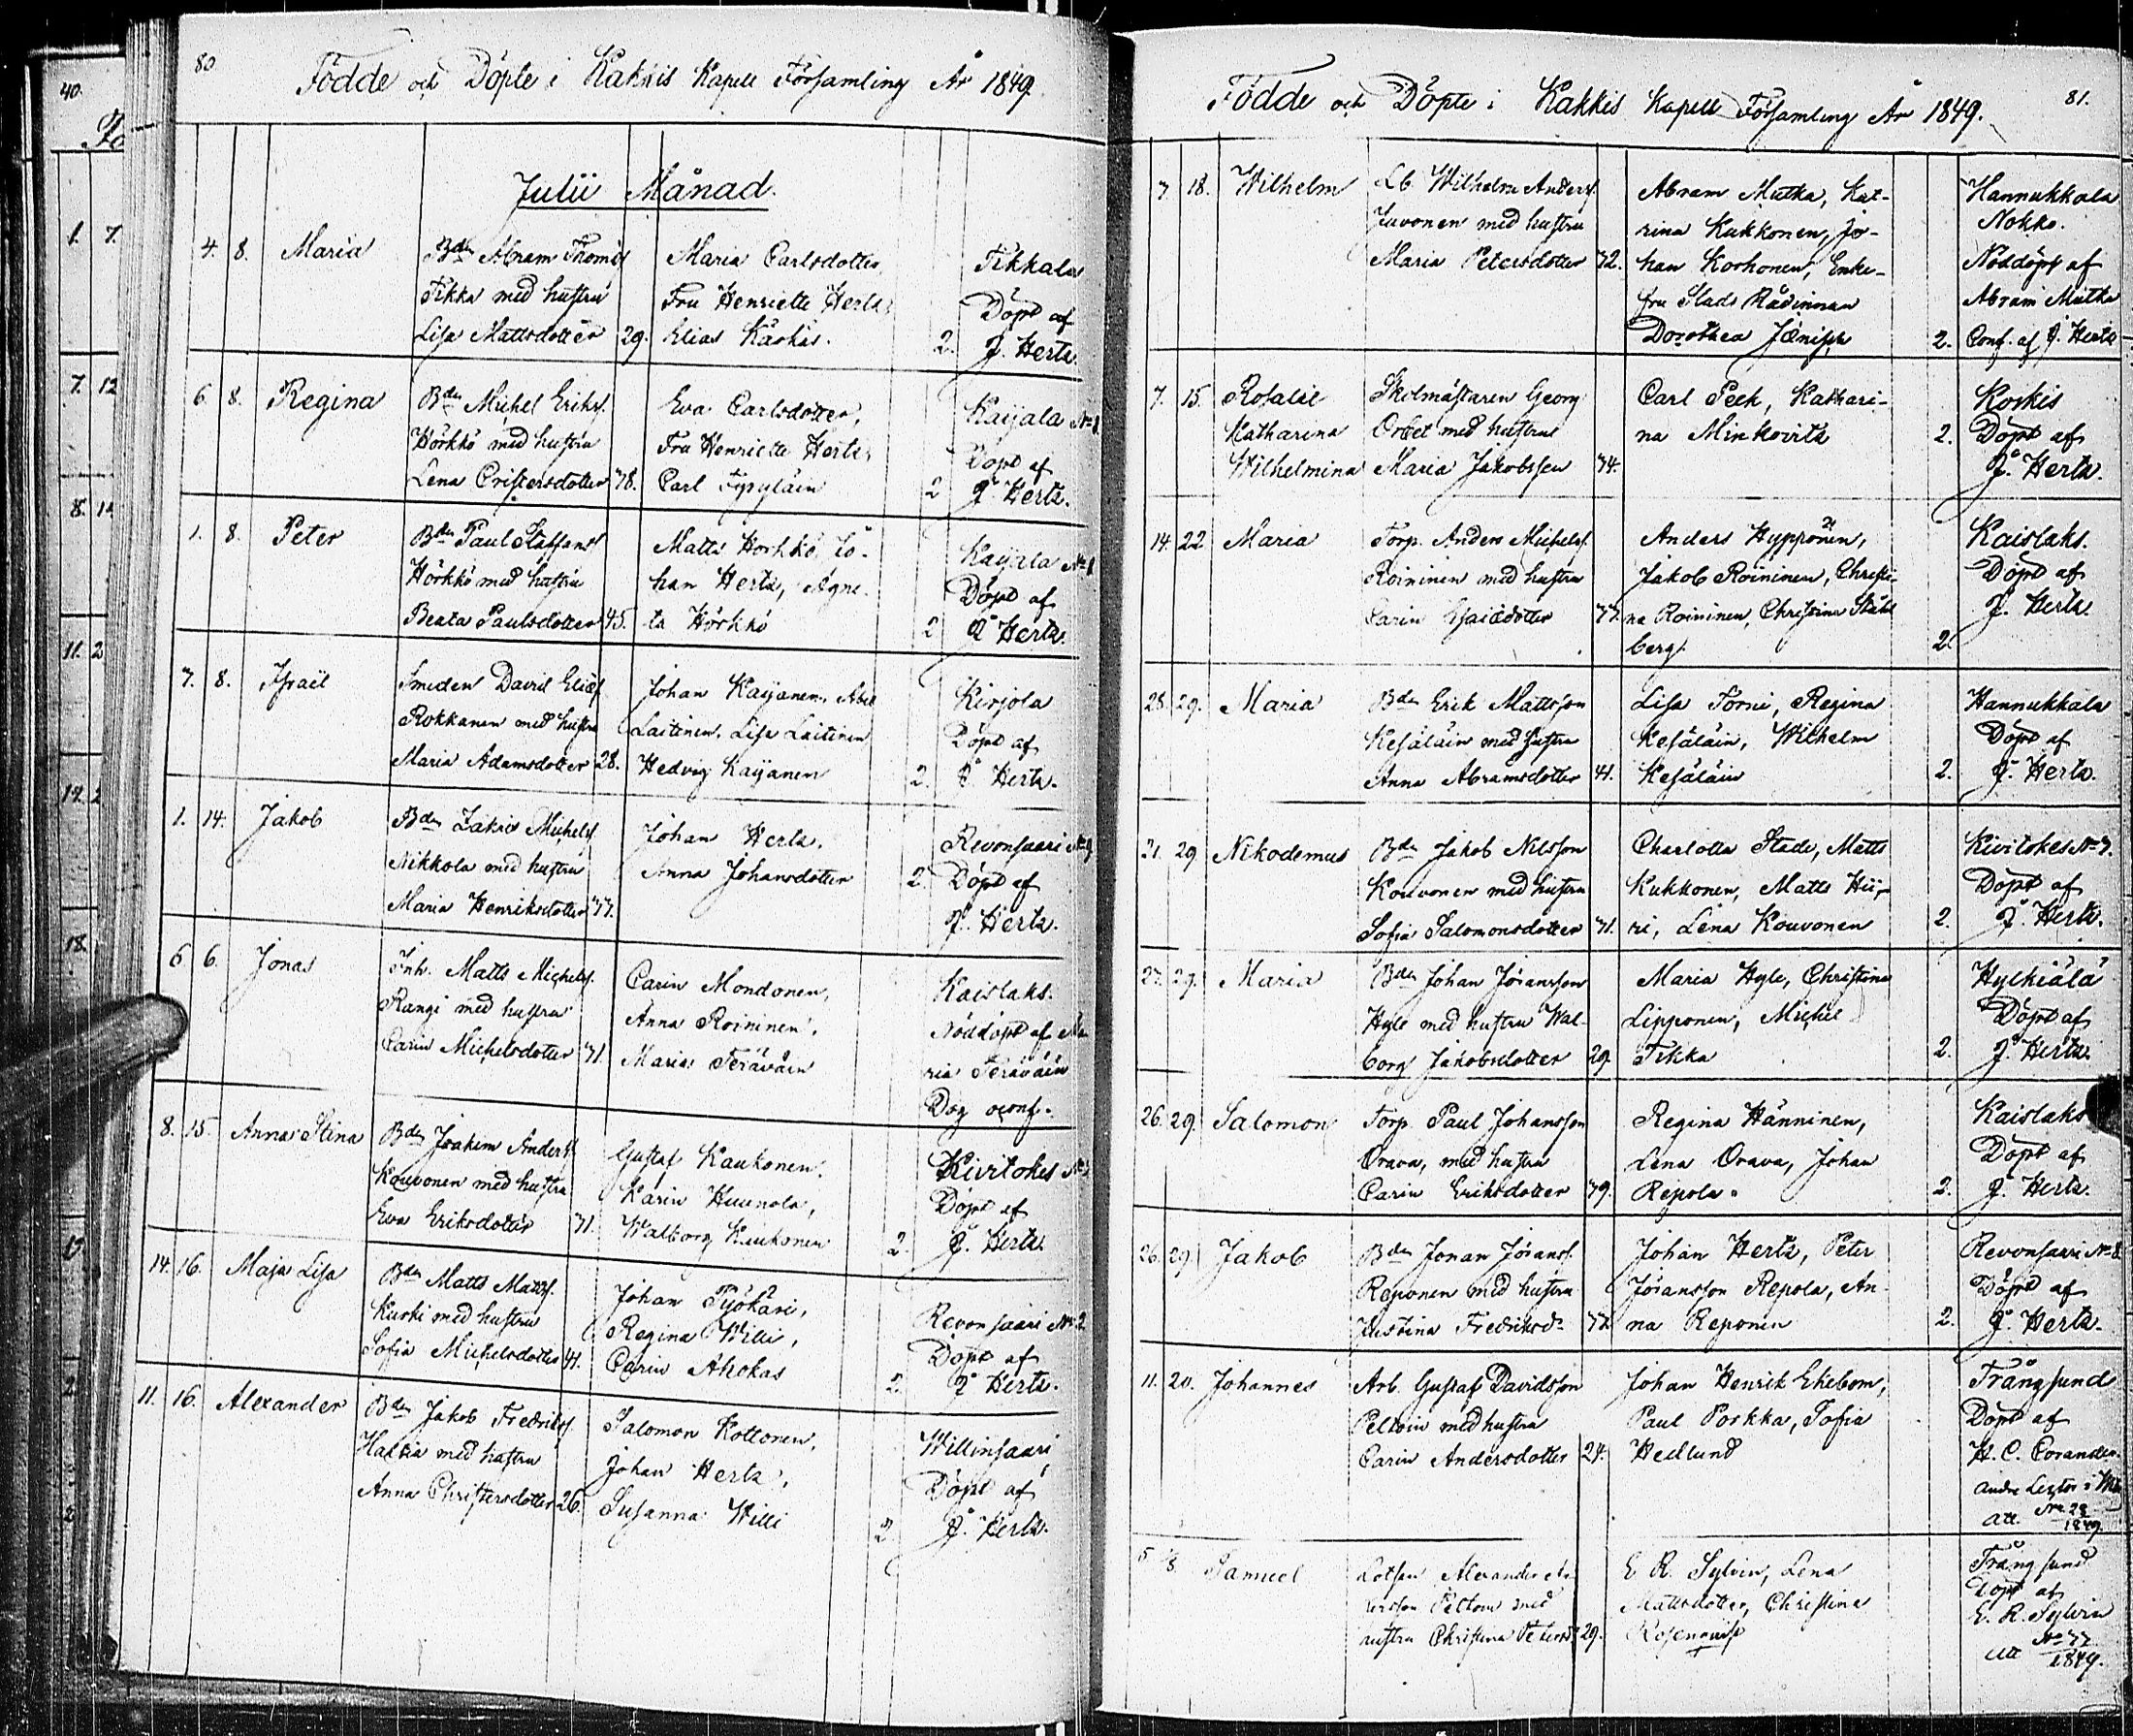 40.
1. 7.
7. 12
80
Födde och Döpte i Kakkis Kapell Församling År 1849.
Julii Månad.
4. 8. Maria Bdn Abram Thomæs. Maria Carlsdotter, Tikkala
Tikka med hustru Fru Henriette Hertz, Döpt af
Lisa Mattsdotter 29. Elias Kärkäs. 2. J. Hertz.
6. 8. Regina Bdn Michel Eriks. Eva Carlsdotter, Kaijala No 1.
Hörkkö med hustru Fru Henriette Hertz, Döpt af
Lena Cristersdotter 78. Carl 2 J. Hertz.
1. 8. Peter Bdn Paul Staffans. Matts Hörkkö, Jo- Kaijala No 1
Hörkkö med hustru han Hertz, Agne- Döpt af
Beata Paulsdotter 45. ta Hörkkö 2 J. Hertz.
7. 8. Israel Smeden David Eliæs. Johan Kaijanen, Abel Kirjola
Rokkanen med hustru Laitinen, Lisa Laitinen Döpt af
Maria Adamsdotter 28. Hedvig Kaijanen 2. J. Hertz.
1. 14. Jakob Bdn Zakris Michels. Johan Hertz, Revonsaari No 9
Nikkola med hustru Anna Johansdotter 2. Döpt af
Maria Henriksdotter 77. J. Hertz.
6 6. Jonas Inh. Matts Michels. Carin Mondonen, Kaislaks.
Rangi med hustru Anna Roininen, Nöddöpt af Ma
Carin Michelsdotter 71. Maria Teräväin ria Teräväin
Dog oconf.
8. 15. Anna Stina Bdn Joakim Anders. Gustaf Kaukonen, Kivitokes No
Kouvonen med hustru Karin Huunola, Döpt af
Eva Eriksdotter 71. Walborg Kaukonen 2. J. Hertz.
14. 16. Maja Lisa Bdn Matts Matts. Johan Pyökäri, Revonsaari No 2
Kurki med hustru Regina Willi, Döpt af
Sofia Michelsdotter 41. Carin Ahokas 2. J. Hertz.
11. 16. Alexander Bdn Jakob Fredriks. Salomon Kottonen, Willinsaari
Hallia med hustru Johan Hertz, Döpt af
Anna Christersdotter 26. Susanna Willi 2 J. Hertz.
Födde och Döpte i Kakkis Kapell Församling År 1849. 81.
7. 18. Wilhelm Lb. Wilhelm Anders. Abram Mutka, Kat- Hannukkala
Juvonen med hustru rina Kukkonen, Jo- Nokko.
Maria Petersdotter 72. han Korhonen, Enke- Nöddöpt af
fru Stads Rådinnan Abram Mutka
Dorothea Jænisch 2. Conf. af J. Hertz
7. 15. Rosalie Skolmästaren Georg Carl Peek, Kathari- Koskis
Katharina Orbet med hustru na Minkovitz 2. Döpt af
Wilhelmina Maria Jakobssen 74. J. Hertz.
14. 22 Maria Torp. Anders Michels. Anders Hyppönen, Kaislaks.
Roininen med hustru Jakob Roininen, Christi- Döpt af
Carin Esaiædotter 77. na Roininen, Christina Ståhl J. Hertz
berg. 2.
28. 29. Maria Bdn Erik Mattsson Lisa Torni, Regina Hannukkala
Kesäläin med hustru Kesäläin, Wilhelm Döpt af
Anna Abramsdotter 41. Kesäläin 2. J. Hertz.
21. 29 Nikodemus Bdn Jakob Nilsson Charlotta Stade, Matts Kivitokes No 7.
Kouvonen med hustru Kukkonen, Matts Hii- Döpt af
Sofia Salomonsdotter 71. ri, Lena Kouvonen 2. J. Hertz.
27. 29. Maria Bdn Johan Jöransson Maria Hyle, Christina Hylkiälä
Hyle med hustru Wal- Lipponen, Michel Döpt af
borg Jakobsdotter 29. Tikka 2. J. Hertz.
26. 29. Salomon Torp. Paul Johansson Regina Hänninen, Kaislaks
Orava, med hustru Lena Orava, Johan Döpt af
Carin Eriksdotter 79. Repola. 2. J. Hertz.
26. 29. Jakob Bdn Jonan Jörans. Johan Hertz, Peter Revonsaari No 8
Reponen med hustru Jöransson Repola, An- Döpt af
Justina Fredriksd. 72 na Reponen 2. J. Hertz.
11. 20. Johannes Arb. Gustaf Davidsson Johan Henrik Ekebom, Trångsund
Peltoin med hustru Paul Porkka, Sofia Döpt af
Carin Andersdotter 24. Hedlund H. C. Corander
andre Lector i
att No 28
1849.
5. 8. Samuel Lotsen Alexander An- E. R. Sylvin, Lena Trångsund
dersson Peltoin med Mattsdotter, Christina Döpt af
hustru Christina Petersd. 29. Rosenqvist E. R. Sylvin
att No 77
1849.